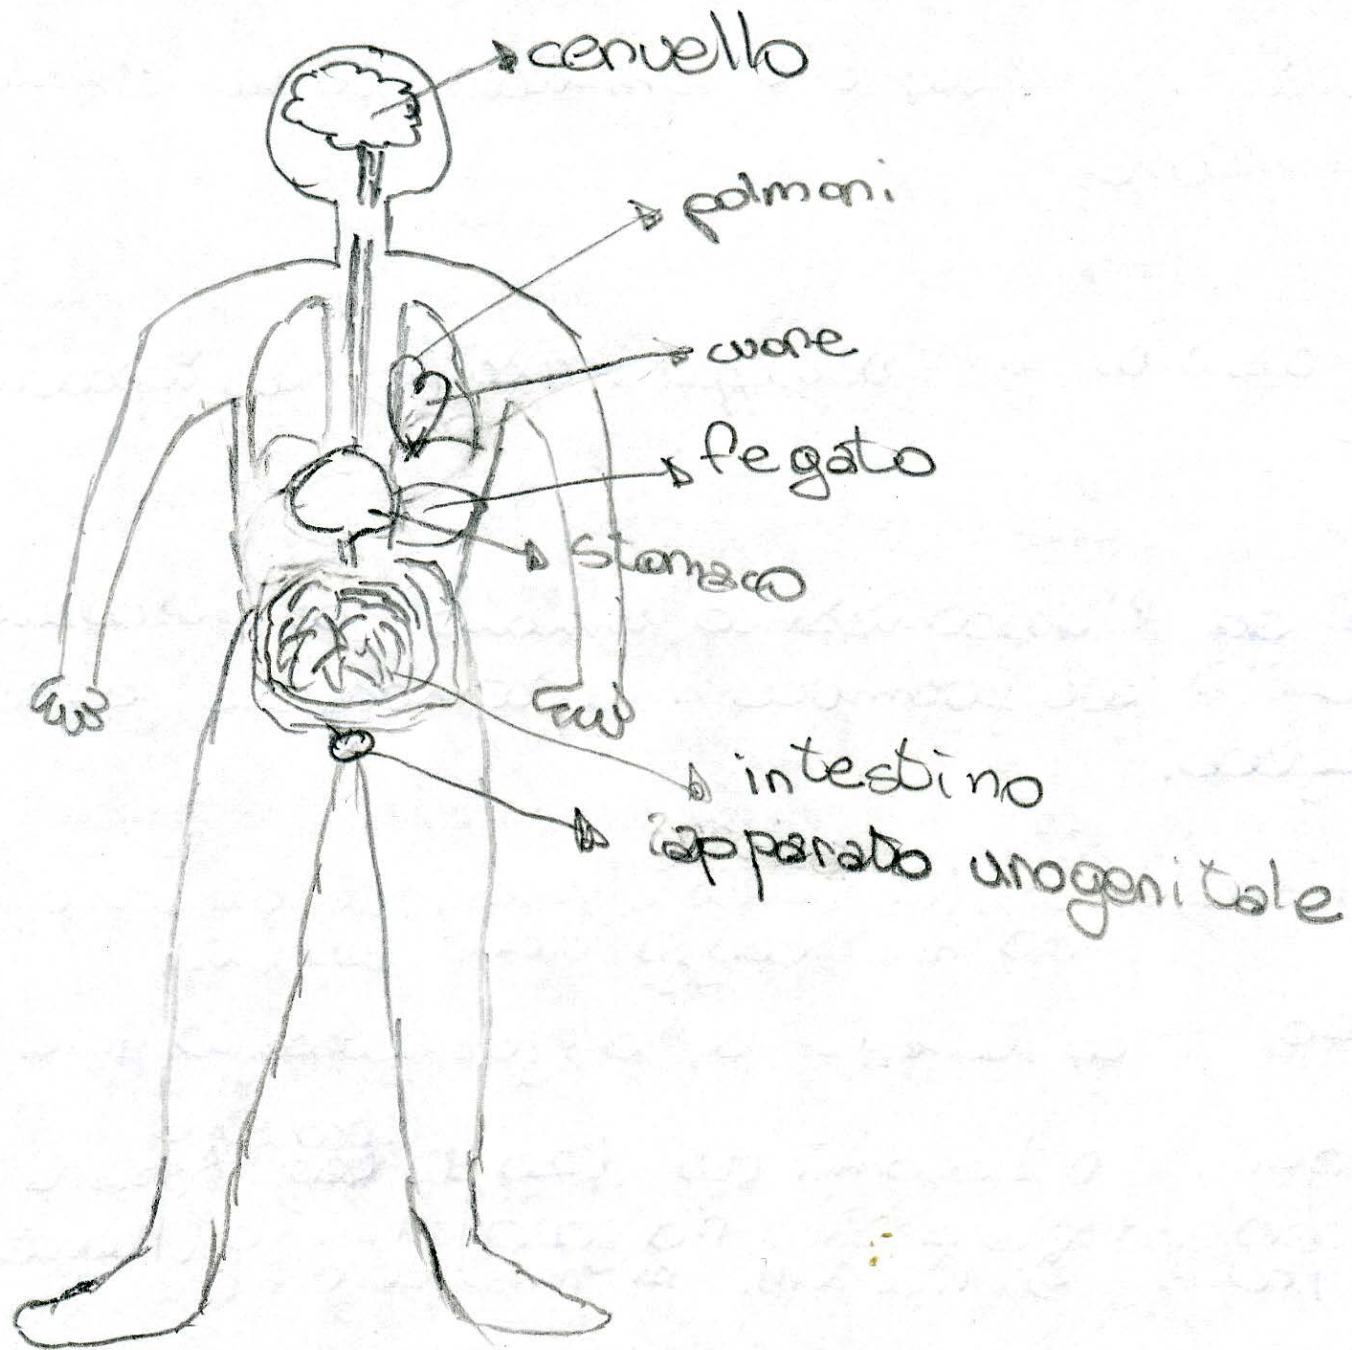 cervello
polmoni
cuore
fegato
stomaco
intestino
apparato urogenitale